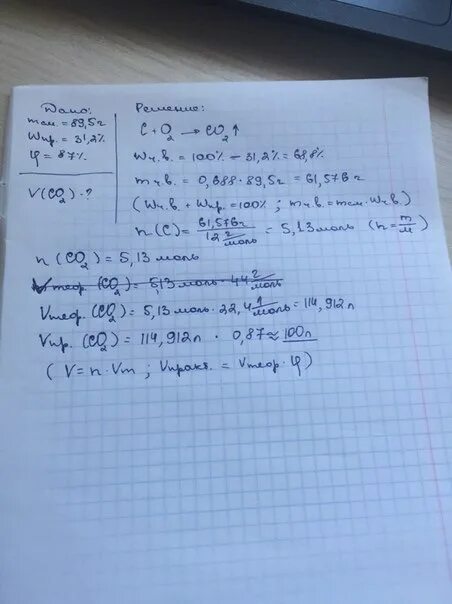 Дано:
mсм. = 89,5 г
Wпр. = 31,2%
φ = 87%
V(CO₂) - ?
Решение:
C + O₂ → CO₂↑
Wч.в. = 100% - 31,2% = 68,8%
mч.в. = 0,688 · 89,5 г = 61,576 г
(Wч.в. + Wпр. = 100% ; mч.в. = mсм. · Wч.в.)
n(C) = 61,576 г / 12 г/моль = 5,13 моль (n = m/M)
n(CO₂) = 5,13 моль
Vтеор. (CO₂) = 5,13 моль · 44 г/моль
Vтеор. (CO₂) = 5,13 моль · 22,4 л/моль = 114,912 л
Vпр. (CO₂) = 114,912 л · 0,87 ≈ 100 л
(V = n · Vm ; Vпракт. = Vтеор · φ)